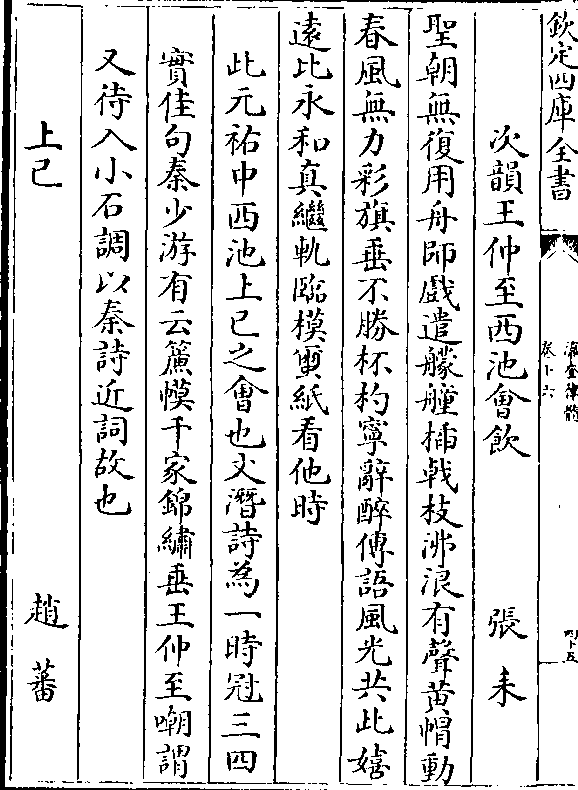 欽定四庫全書
瀛奎律髓
卷十六
四十五
次韻王仲至西池會飲　張耒
聖朝無復用舟師戲遣艨艟插戟枝沸浪有聲黃帽動
春風無力彩旗垂不勝杯杓寧辭醉傳語風光共此嬉
遠比永和真繼軌臨模覓紙看他時
此元祐中西池上已之會也文潛詩為一時冠三四
實佳句秦少游有云簾幙千家錦繡垂王仲至嘲謂
又待入小石調以秦詩近詞故也
上已　趙蕃